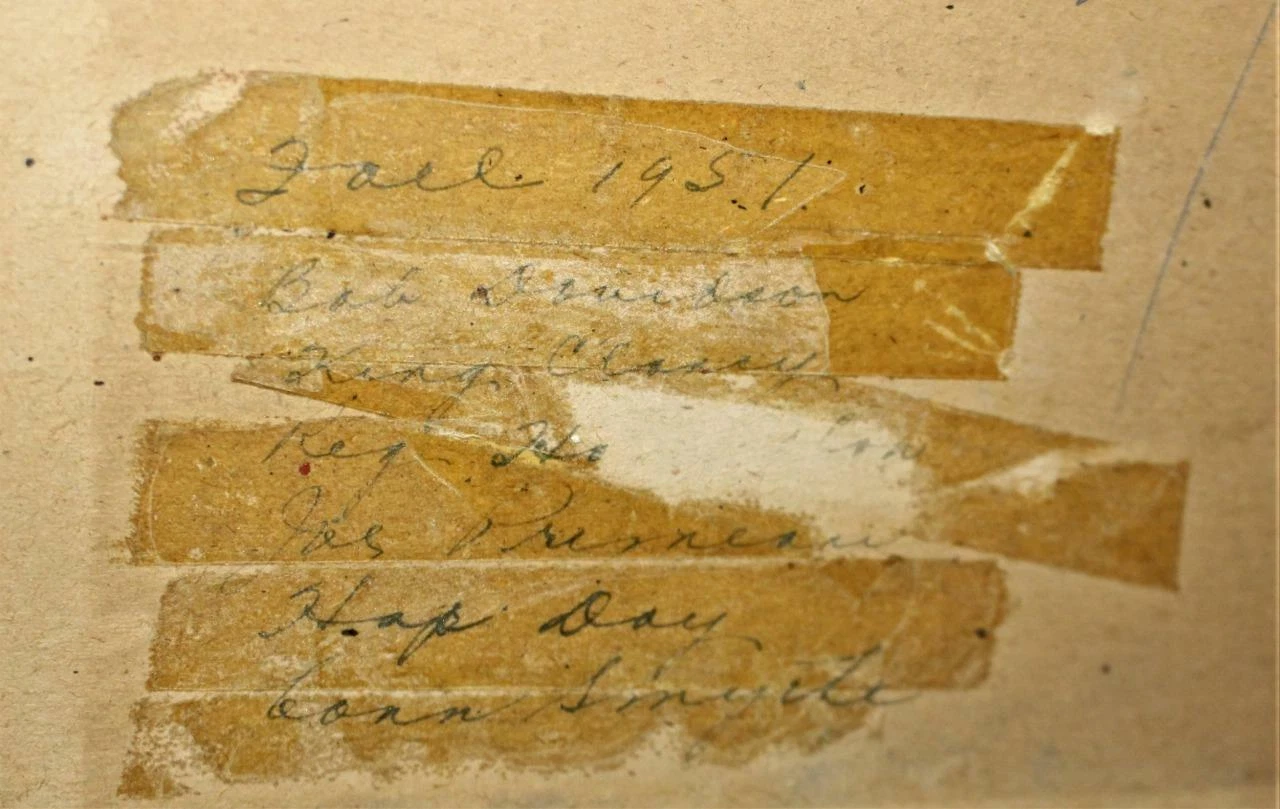 Fall 1951
Bob Davidson
King Clancy
Reg. 
Joe Primeau
Hap Day
Conn Smythe